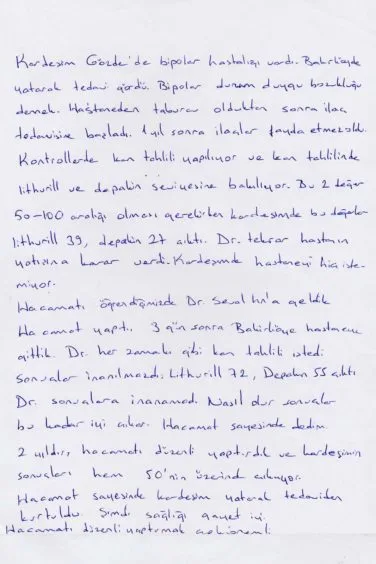 Kardeşim Gözde'de bipolar hastalığı vardı. Bakırköyde
yatarak tedavi gördü. Bipolar durum duygu bozukluğu
demek. Hastaneden taburcu olduktan sonra ilaç
tedavisine başladı. 1 yıl sonra ilaçlar fayda etmez oldu.
Kontrollerde kan tahlili yapılıyor ve kan tahlilinde
lithurill ve depakin seviyesine bakılıyor. Bu 2 değer
50-100 aralığı olması gerekirken kardeşimde bu değerler
lithurill 39, depakin 27 çıktı. Dr. tekrar hastanın
yatışına karar verdi. Kardeşimde hastaneyi hiç iste-
miyor.
Hacamatı öğrendiğimizde Dr. Seval Hn'a geldik
Hacamat yaptı. 3 gün sonra Bakırköye hastaneye
gittik. Dr. her zamanki gibi kan tahlili istedi
Sonuçlar inanılmazdı. Lithurill 72, Depakin 55 çıktı
Dr. sonuçlara inanamadı. Nasıl olur sonuçlar
bu kadar iyi çıkar. Hacamat sayesinde dedim.
2 yıldır, hacamatı düzenli yaptırdık ve kardeşimin
sonuçları hem 50'nin üzerinde çıkıyor.
Hacamat sayesinde kardeşim yatarak tedaviden
kurtuldu. Şimdi sağlığı gayet iyi.
Hacamatı düzenli yaptırmak çok önemli.